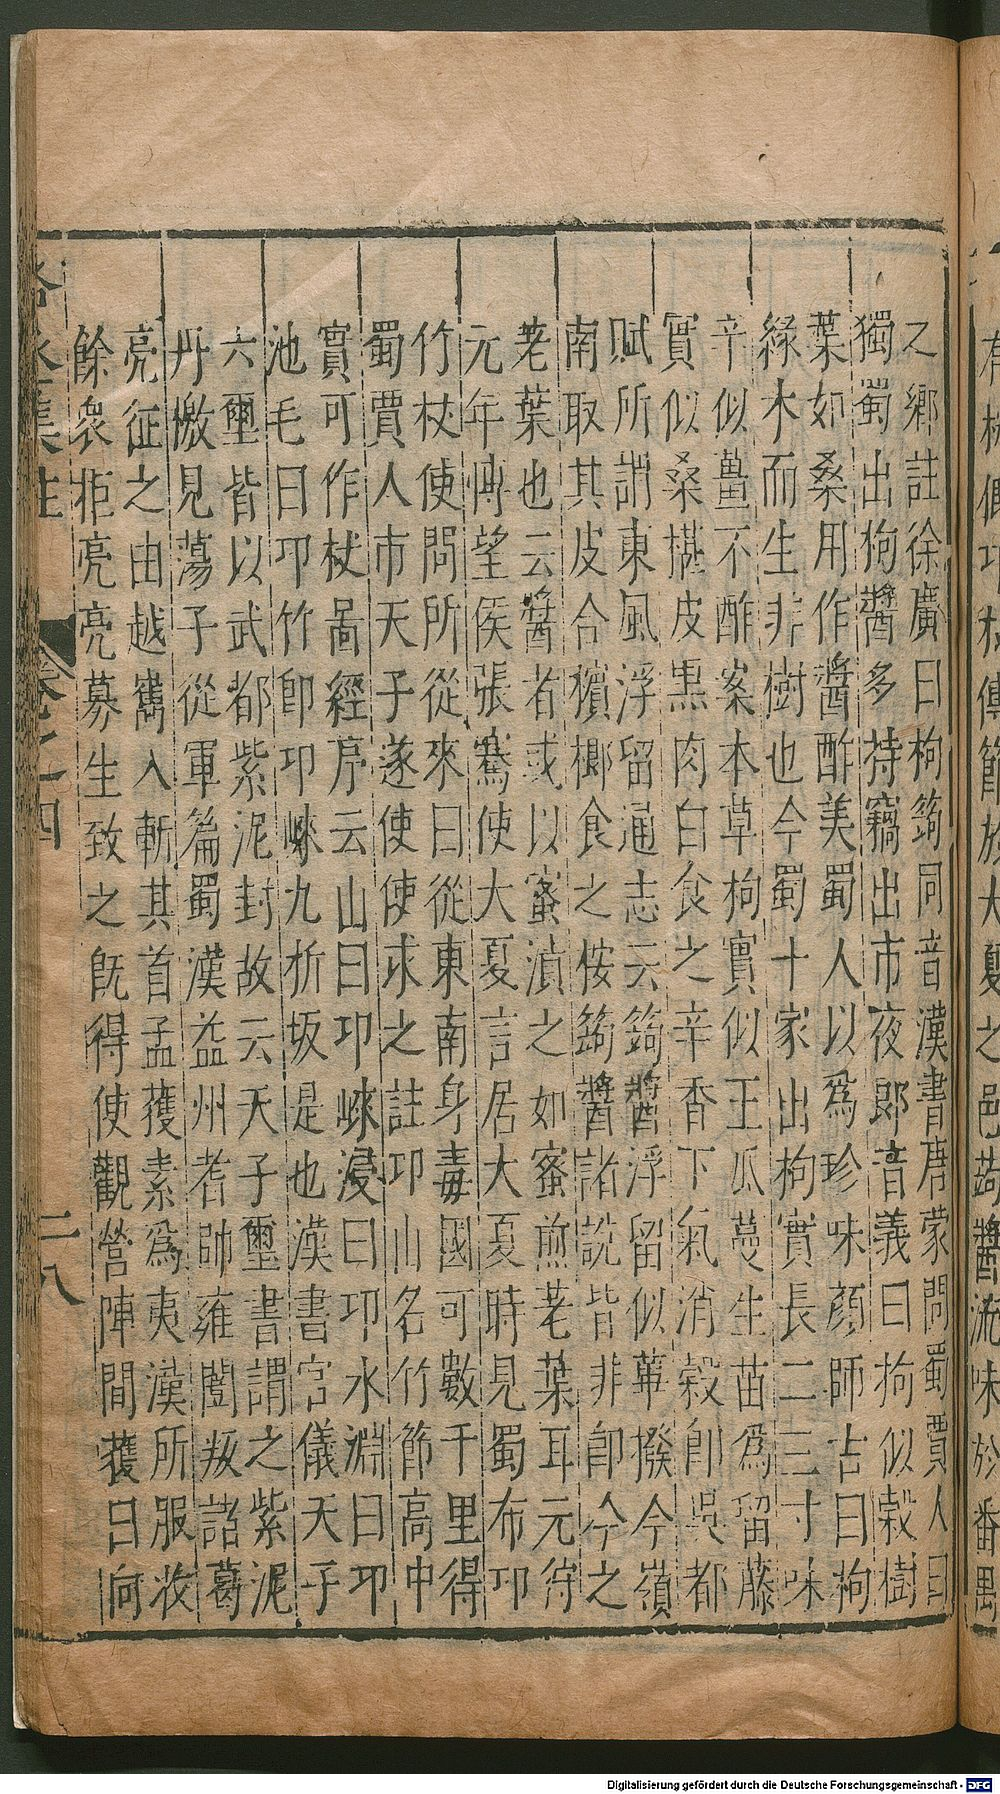 之鄉註徐廣曰枸蒟同音漢書唐蒙問蜀賈人曰
獨蜀出枸醬多持竊出市夜郎音義曰枸似穀樹
葉如桑用作醬酢美蜀人以爲珍味顔師古曰枸
綠木而生非樹也今蜀十家出枸實長二三寸味
辛似薑不酢案本草枸實似王瓜蔓生苗爲留藤
實似桑椹皮黒肉白食之辛香下氣消穀卽吳都
賦所謂東風浮留通志云蒟醬浮留似蓽撥今嶺
南取其皮合檳榔食之桉蒟醬諸説皆非卽今之
荖葉也云醬者或以蜜漬之如蜜煎荖葉耳元符
元年博望侯張騫使大夏言居大夏時見蜀布卭
竹杖使問所從來曰從東南身毒國可數千里得
蜀賈人市天子遂使使求之註卭山名竹節高中
實可作杖啚經序云山曰卭崍浸曰卭水淵曰卭
池毛曰卭竹卽卭崍九折坂是也漢書官儀天子
六璽皆以武都紫泥封故云天子璽書謂之紫泥
丹檄見蕩子從軍篇蜀漢益州耆帥雍闓叛諸葛
亮征之由越雟入斬其首孟獲素爲夷漢所服收
餘衆拒亮亮募生致之旣得使觀營陣間獲曰向
集註
卷之四
二八
Digitalisierung gefördert durch die Deutsche Forschungsgemeinschaft - DFG